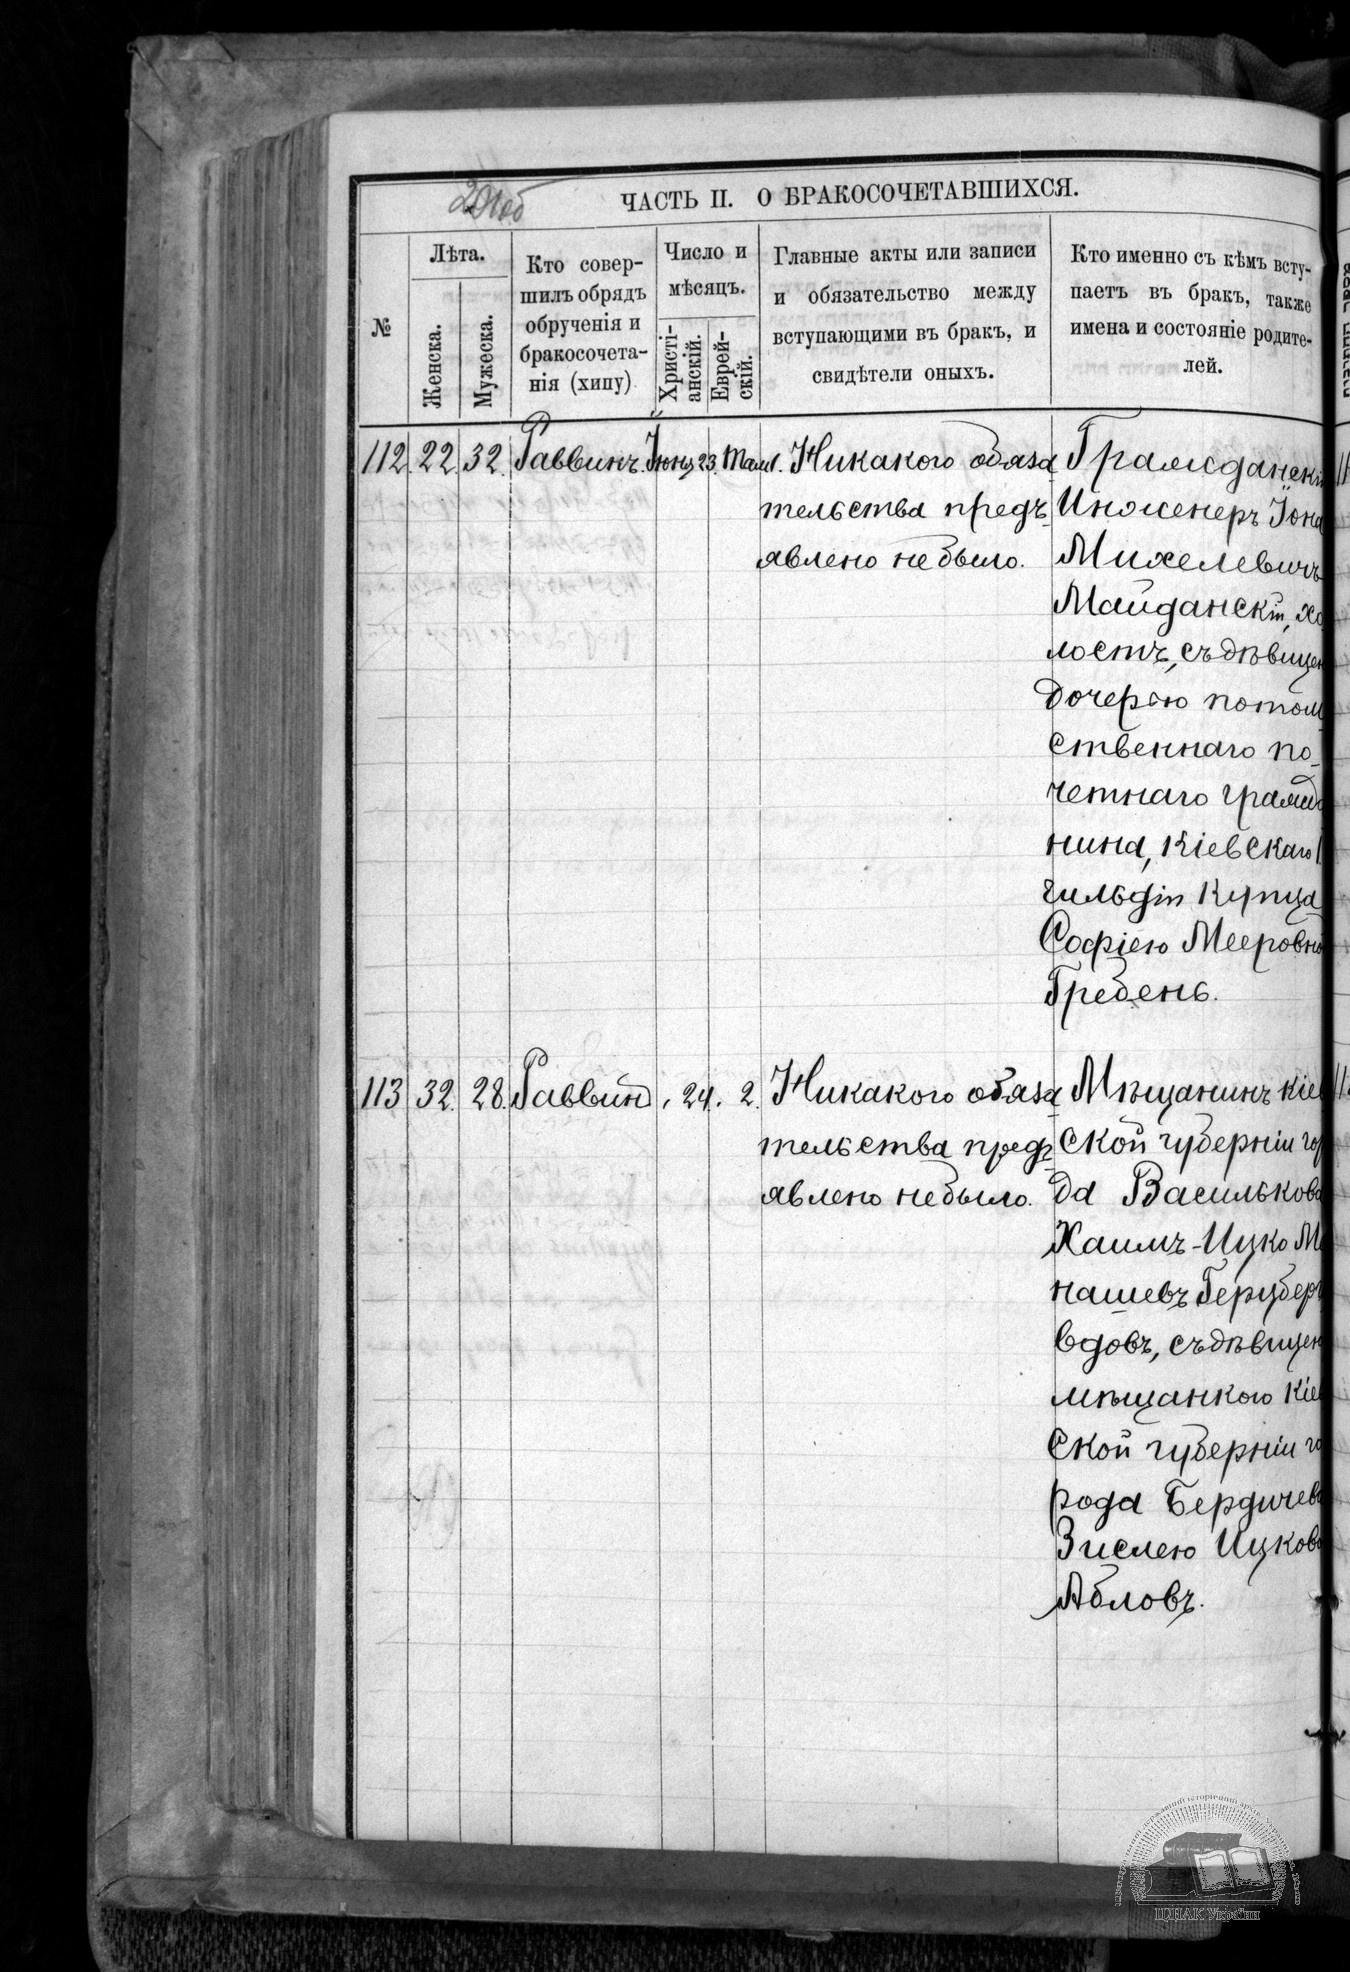 201об
ЧАСТЬ II. О БРАКОСОЧЕТАВШИХСЯ.
№
Лѣта.
Женска.
Мужеска.
Кто совер-
шилъ обрядъ
обрученія и
бракосочета-
нія (хипу)
Число и
мѣсяцъ.
Христі-
анскій.
Еврей-
скій.
Главные акты или записи
и обязательство между
вступающими въ бракъ, и
свидѣтели оныхъ.
Кто именно съ кѣмъ всту-
паетъ въ бракъ, также
имена и состояніе родите-
лей.
112. 22. 32. Раввинъ. Іюня 23. Там. 1.
Никакого обяза
тельства предъ-
явлено не было.
Гражданскій
Инженеръ Іона
Михелевичъ
Майданскій, хо
лостъ, съ дѣвицею
дочерью потом
ственнаго по-
четнаго гражда
нина, Кіевскаго 1
гильдіи купца
Софіею Мееровно
Гребень.
113 32. 28. Раввинъ , 24. 2.
Никакого обяза
тельства предъ-
явлено не было.
Мѣщанинъ Кіев
ской губерніи го
да Василькова
Хаимъ-Ицко Ме
нашевъ Герцберг
вдовъ, съ дѣвицею
мѣщанкою Кіев
ской губерніи го
рода Бердичева
Зислею Ицково
Абловъ.
ЦДІАК України